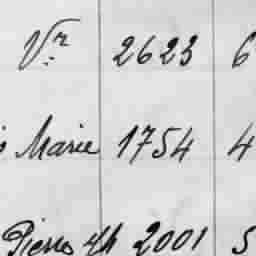 Vr. 2623 6
s Marie 1754 4
Pierre Jh 2001 5